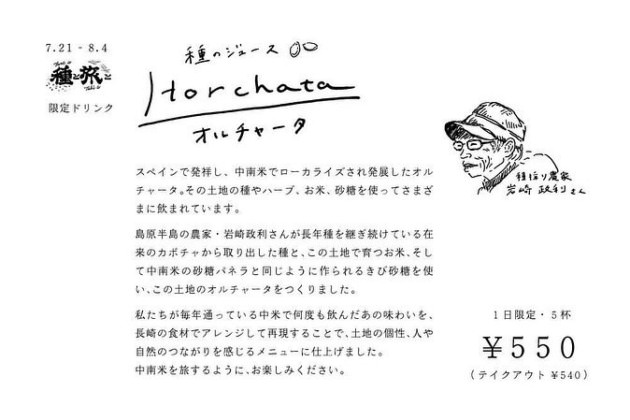 7.21 - 8.4
種と旅と
限定ドリンク
種のジュース
Horchata
オルチャータ
スペインで発祥し、中南米でローカライズされ発展したオル
チャータ。その土地の種やハーブ、お米、砂糖を使ってさまざ
まに飲まれています。
島原半島の農家・岩崎政利さんが長年種を継ぎ続けている在
来のカボチャから取り出した種と、この土地で育つお米、そし
て中南米の砂糖パネラと同じように作られるきび砂糖を使
い、この土地のオルチャータをつくりました。
私たちが毎年通っている中米で何度も飲んだあの味わいを、
長崎の食材でアレンジして再現することで、土地の個性、人や
自然のつながりを感じるメニューに仕上げました。
中南米を旅するように、お楽しみください。
種採り農家
岩崎 政利さん
1日限定・5杯
¥550
(テイクアウト ¥540)